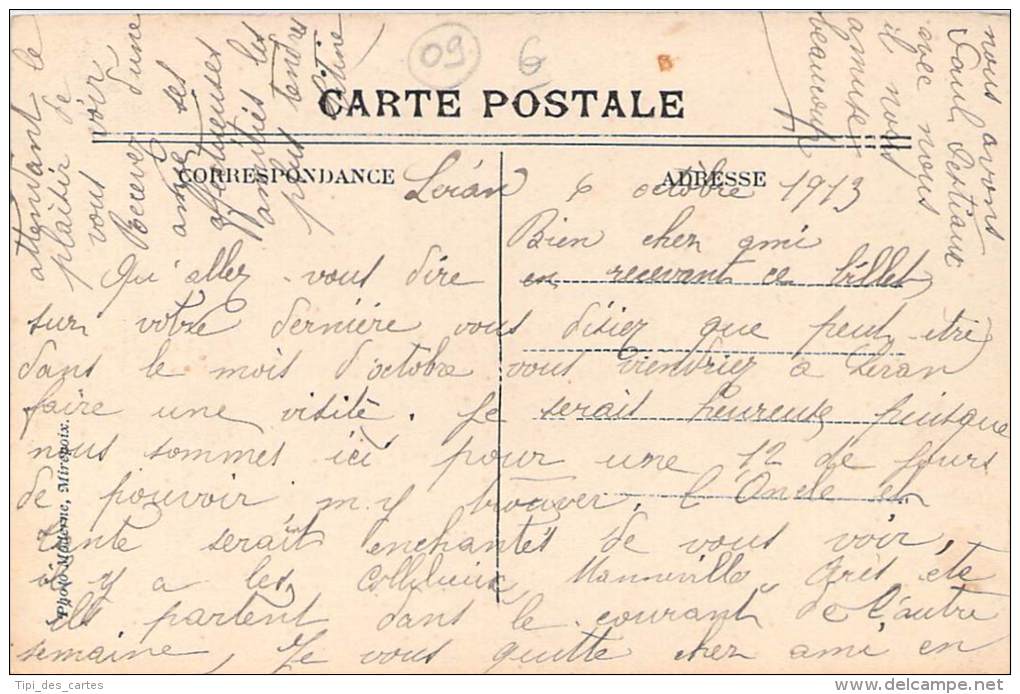 CARTE POSTALE
CORRESPONDANCE
ADRESSE
09
6
Léran 6 octobre 1913
Bien cher ami
Qu'allez-vous dire en recevant ce billet
sur votre dernière vous disiez que peut etre
dans le mois d'octobre vous viendriez a Léran
faire une visite. Je serais heureuse puisque
nous sommes ici pour une 12 de jours
de pouvoir, m'y trouver. L'Oncle et
tante serait enchantés de vous voir,
il y a les Manneville, Grès, etc
ils partent dans le courant de l'autre
semaine, Je vous quitte cher ami en
attendant le
plaisir de
vous voir
Recevez d'une
amie ses
affectueuses
amitiés les
plus tendres
nous avons
Paul
avec nous
il nous
amuse
beaucoup
Photo Moderne, Mirepoix.
Tipi_des_cartes
delcampe.net